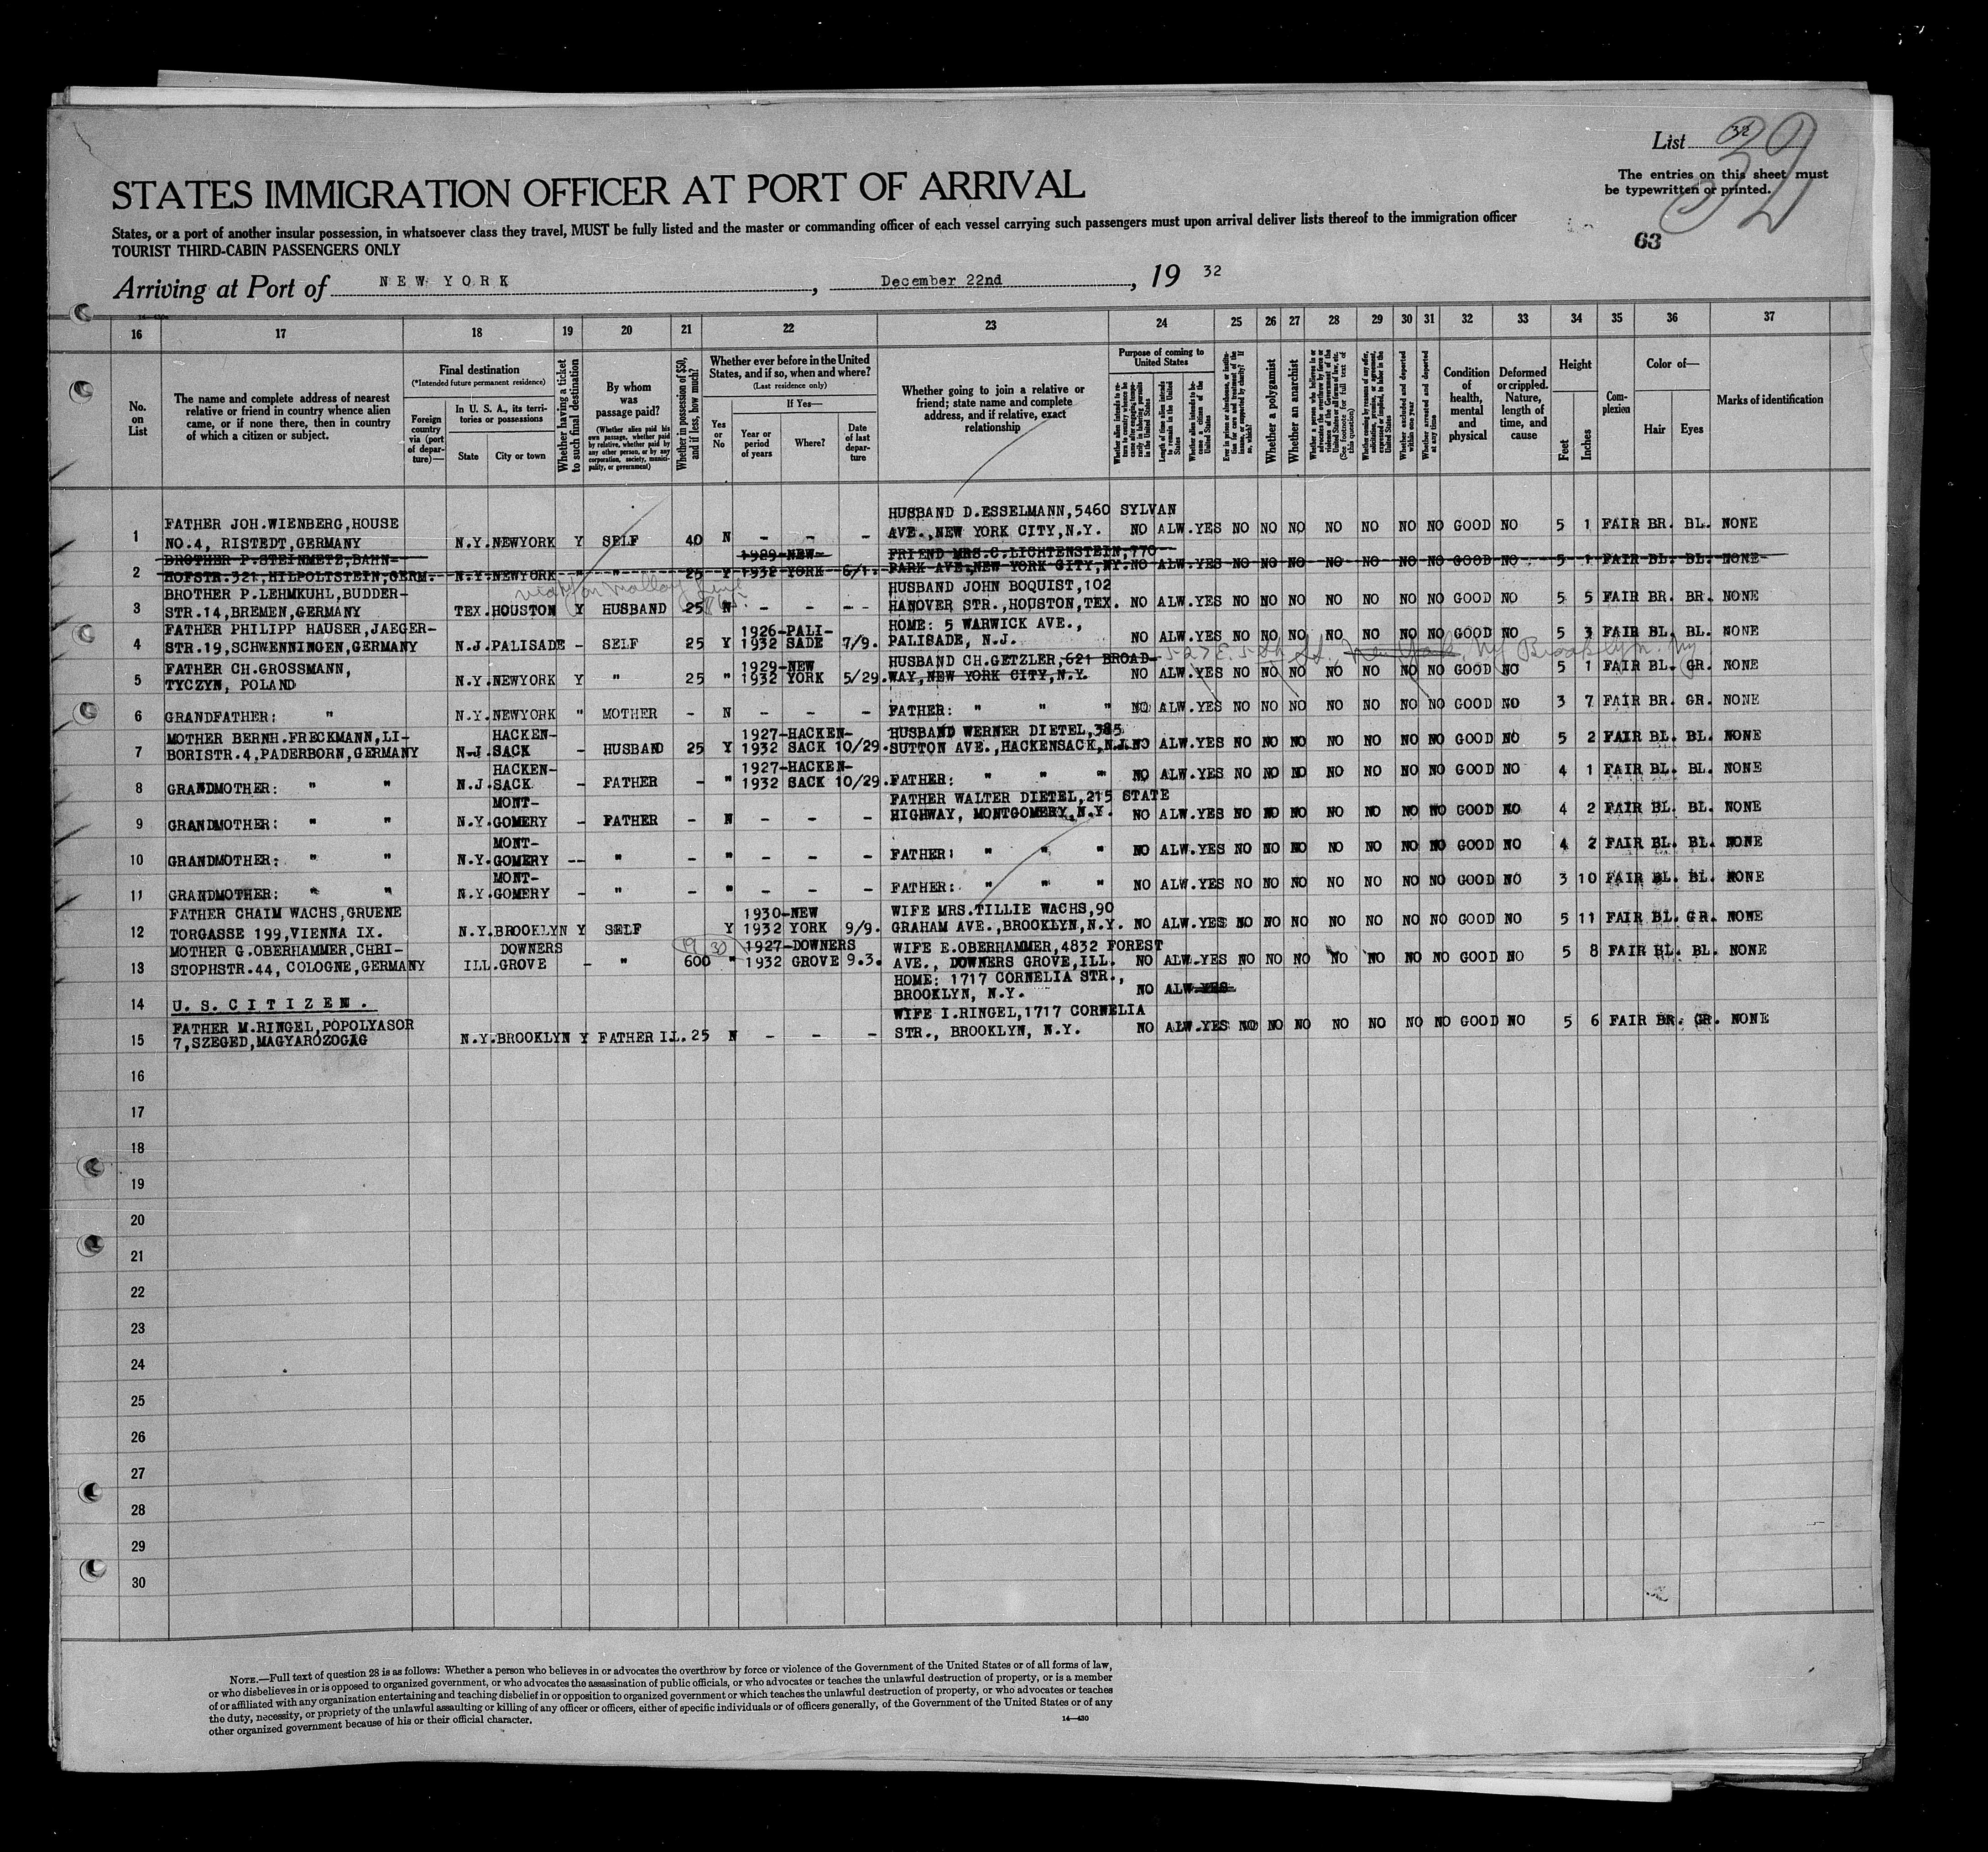 List 32
32
The entries on this sheet must
be typewritten or printed.
63
STATES IMMIGRATION OFFICER AT PORT OF ARRIVAL
States, or a port of another insular possession, in whatsoever class they travel, MUST be fully listed and the master or commanding officer of each vessel carrying such passengers must upon arrival deliver lists thereof to the immigration officer
TOURIST THIRD-CABIN PASSENGERS ONLY
Arriving at Port of NEW YORK, December 22nd, 19 32
16 17 18 19 20 21 22 23 24 25 26 27 28 29 30 31 32 33 34 35 36 37
No. on List
The name and complete address of nearest
relative or friend in country whence alien
came, or if none there, then in country
of which a citizen or subject.
Final destination
(*Intended future permanent residence)
Foreign country via (port of departure)—
In U. S. A., its territories or possessions
State
City or town
Whether having a ticket to such final destination
By whom was passage paid?
(Whether alien paid his own passage, whether paid by relative, whether paid by any other person, or by any corporation, society, municipality, or government)
Whether in possession of $50, and if less, how much?
Whether ever before in the United States, and if so, when and where?
(Last residence only)
Yes or No
If Yes—
Year or period of years
Where?
Date of last departure
Whether going to join a relative or
friend; state name and complete
address, and if relative, exact
relationship
Purpose of coming to United States
Length of time alien intends to remain in the United States
Whether alien intends to become a citizen of the United States
Whether a polygamist
Whether an anarchist
Whether arrested and deported at any time
Condition of health, mental and physical
Deformed or crippled. Nature, length of time, and cause
Height
Feet
Inches
Complexion
Color of—
Hair
Eyes
Marks of identification
1 FATHER JOH.WIENBERG,HOUSE NO.4, RISTEDT,GERMANY N.Y. NEWYORK Y SELF 40 N - - - HUSBAND D.ESSELMANN,5460 SYLVAN AVE.,NEW YORK CITY,N.Y. NO ALW.YES NO NO NO NO NO NO NO GOOD NO 5 1 FAIR BR. BL. NONE
2 BROTHER P.STEINMETZ,BAHN-HOFSTR.321,HILPOLTSTEIN,GERM. N.Y.NEWYORK " " 25 Y 1929-NEW- 1932 YORK 6/1. FRIEND MRS.C.LICHTENSTEIN,770 PARK AVE.,NEW YORK CITY,NY. NO ALW.YES NO NO NO NO NO NO NO GOOD NO 5 1 FAIR BL. BL. NONE
3 BROTHER P.LEHMKUHL,BUDDER-STR.14,BREMEN,GERMANY TEX.HOUSTON Y HUSBAND 25 N - - - HUSBAND JOHN BOQUIST,102 HANOVER STR.,HOUSTON,TEX. NO ALW.YES NO NO NO NO NO NO NO GOOD NO 5 5 FAIR BR. BR. NONE
4 FATHER PHILIPP HAUSER,JAEGER-STR.19,SCHWENNINGEN,GERMANY N.J.PALISADE - SELF 25 Y 1926-PALI- 1932 SADE 7/9. HOME: 5 WARWICK AVE., PALISADE, N.J. NO ALW.YES NO NO NO NO NO NO NO GOOD NO 5 3 FAIR BL. BL. NONE
527 E. 5th St., New York, NY Brooklyn. NY
5 FATHER CH.GROSSMANN, TYCZYN, POLAND N.Y.NEWYORK Y " 25 " 1929-NEW 1932 YORK 5/29. HUSBAND CH.GETZLER,621 BROAD-WAY,NEW YORK CITY,N.Y. NO ALW.YES NO NO NO NO NO NO NO GOOD NO 5 1 FAIR BL. GR. NONE
6 GRANDFATHER: " N.Y.NEWYORK " MOTHER - N - - - FATHER: " " " NO ALW.YES NO NO NO NO NO NO NO GOOD NO 3 7 FAIR BR. GR. NONE
7 MOTHER BERNH.FRECKMANN,LI-BORISTR.4,PADERBORN,GERMANY N.J. HACKEN-SACK - HUSBAND 25 Y 1927-HACKEN- 1932 SACK 10/29. HUSBAND WERNER DIETEL,385 SUTTON AVE.,HACKENSACK,N.J. NO ALW.YES NO NO NO NO NO NO NO GOOD NO 5 2 FAIR BL. BL. NONE
8 GRANDMOTHER: " " N.J. HACKEN-SACK - FATHER - " 1927-HACKEN- 1932 SACK 10/29. FATHER: " " " NO ALW.YES NO NO NO NO NO NO NO GOOD NO 4 1 FAIR BL. BL. NONE
9 GRANDMOTHER: " " N.Y. MONT-GOMERY - FATHER - N - - - FATHER WALTER DIETEL,215 STATE HIGHWAY, MONTGOMERY,N.Y. NO ALW.YES NO NO NO NO NO NO NO GOOD NO 4 2 FAIR BL. BL. NONE
10 GRANDMOTHER: " " N.Y. MONT-GOMERY -- " - " - - - FATHER: " " " NO ALW.YES NO NO NO NO NO NO NO GOOD NO 4 2 FAIR BL. BL. NONE
11 GRANDMOTHER: " " N.Y. MONT-GOMERY - " - " - - - FATHER: " " " NO ALW.YES NO NO NO NO NO NO NO GOOD NO 3 10 FAIR BL. BL. NONE
12 FATHER CHAIM WACHS,GRUENE TORGASSE 199,VIENNA IX. N.Y.BROOKLYN Y SELF Y 1930-NEW 1932 YORK 9/9. WIFE MRS.TILLIE WACHS,90 GRAHAM AVE.,BROOKLYN,N.Y. NO ALW.YES NO NO NO NO NO NO NO GOOD NO 5 11 FAIR BL. GR. NONE
13 MOTHER G.OBERHAMMER,CHRI-STOPHSTR.44, COLOGNE,GERMANY ILL. DOWNERS GROVE - " 600 " 19 30 1927-DOWNERS 1932 GROVE 9.3. WIFE E.OBERHAMMER,4832 FOREST AVE., DOWNERS GROVE,ILL. NO ALW.YES NO NO NO NO NO NO NO GOOD NO 5 8 FAIR BL. BL. NONE
14 U.S.CITIZEN. HOME: 1717 CORNELIA STR., BROOKLYN, N.Y. NO ALW.YES
15 FATHER M.RINGEL,POPOLYASOR 7,SZEGED,MAGYAROZOGAG N.Y.BROOKLYN Y FATHER I.L. 25 N - - - WIFE I.RINGEL,1717 CORNELIA STR., BROOKLYN, N.Y. NO ALW.YES NO NO NO NO NO NO NO GOOD NO 5 6 FAIR BR. GR. NONE
16
17
18
19
20
21
22
23
24
25
26
27
28
29
30
NOTE.—Full text of question 28 is as follows: Whether a person who believes in or advocates the overthrow by force or violence of the Government of the United States or of all forms of law,
or who disbelieves in or is opposed to organized government, or who advocates the assassination of public officials, or who advocates or teaches the unlawful destruction of property, or is a member
of or affiliated with any organization entertaining and teaching disbelief in or opposition to organized government or which teaches the unlawful destruction of property, or who advocates or teaches
the duty, necessity, or propriety of the unlawful assaulting or killing of any officer or officers, either of specific individuals or of officers generally, of the Government of the United States or of any
other organized government because of his or their official character.
14—430